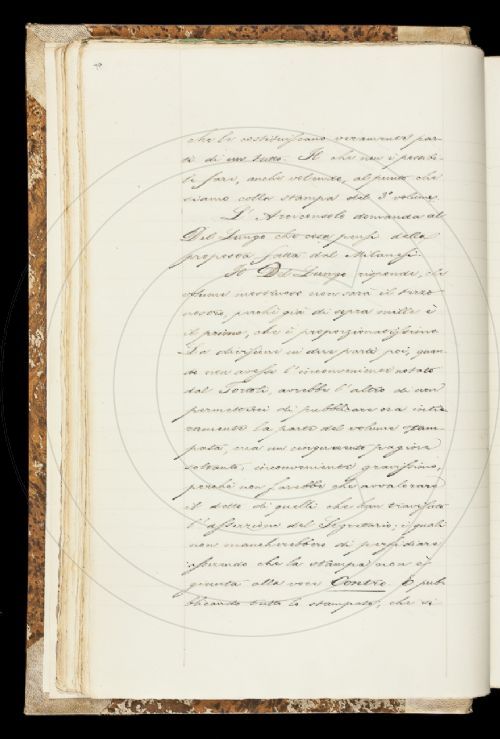 che le costituiscano veramente par-
ti di un tutto. Il che non è possibi-
le fare, anche volendo, al punto che
siamo colla stampa del 3° volume.
L'Arciconsolo domanda al
Del Lungo che cosa pensi della
proposta fatta dal Milanesi.
Il Del Lungo risponde, che
volume mostruoso non sarà il terzo
nostro, perchè già di sopra mille è
il primo, che è proporzionatissimo.
La divisione in due parti poi, quan-
do non avesse l'inconveniente notato
dal Tortoli, avrebbe l'altro di non
permetterci di pubblicare ora intie-
ramente la parte del volume stam-
pata, ma un cinquecento pagine
soltanto, inconveniente gravissimo,
perchè non farebbe che avvalorare
il detto di quelli che han travisato
l'asserzione del Segretario; i quali
non mancherebbero di perfidiare
asserendo che la stampa non è
giunta alla voce Contro. E pub-
blicando tutto lo stampato, che si